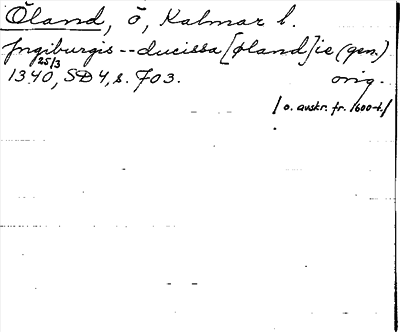 Öland, ö, Kalmar l.
Jngiburgis -- ducissa [øland]ie (gen.)
25/3
1340, SD 4, s. 703. orig.
/ o. avskr. fr. 1600-t./